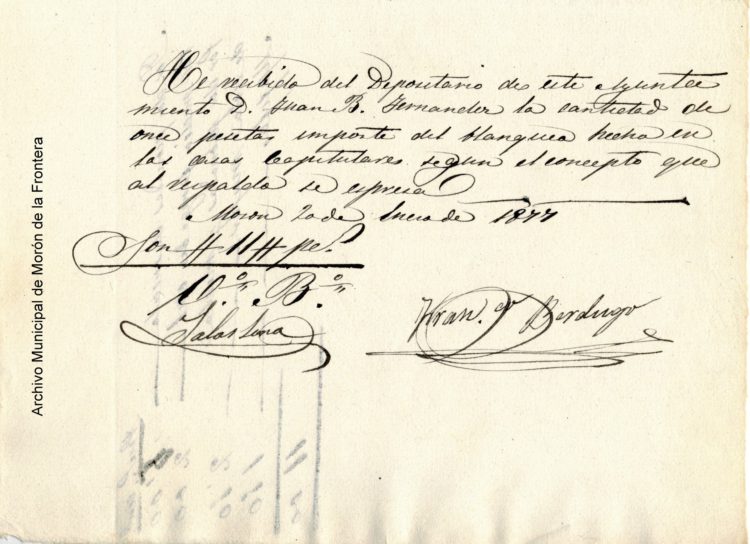 He recibido del Depositario de este Ayunta
miento D. Juan B. Hernandez la cantidad de
once pesetas importe del blanqueo hecho en
las casas Capitulares segun el concepto que
al respaldo se espresa
Moron 20 de Enero de 1877
Son # 11 # pe.s
V.º B.º
Salas Lina
Fran.co Berdugo
Archivo Municipal de Morón de la Frontera